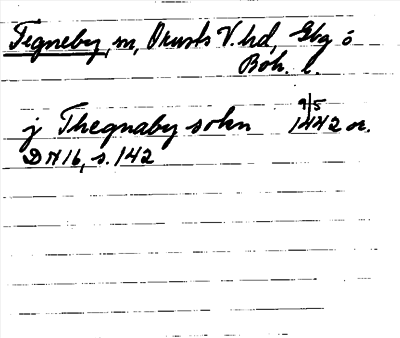 Tegneby, sn, Orusts V. hd, Gbg o
Boh. l.
9/5
j Thegnaby sokn 1442 or.
DN 16, s. 142